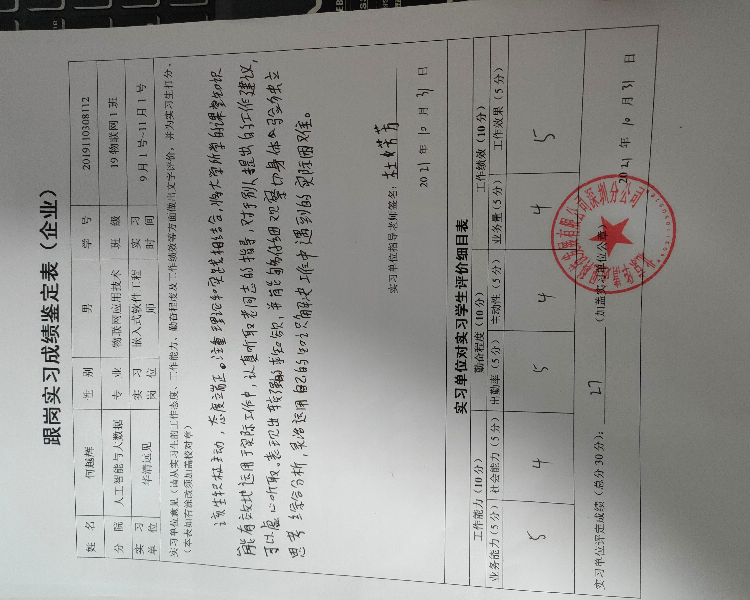 跟岗实习成绩鉴定表（企业）
姓 名 何越辉 性 别 男 学 号 2019110308112
分 院 人工智能与大数据 专 业 物联网应用技术 班 级 19物联网1班
实 习 单 位 华清远见 实 习 岗 位 嵌入式软件工程师 实 习 时 间 9月1号~11月1号
实习单位意见（请从实习生的工作态度、工作能力、勤奋程度及工作绩效等方面做出文字评价，并为实习生打分，
（本表如有涂改须加盖校对章）
该生积极主动，态度端正。注重理论和实践相结合，将大学所学的课堂知识
能有效地运用于实际工作中，认真听取老同志的指导，对别人提出的工作建议，
可以虚心听取。表现出较强的求知欲，并能够仔细观察、切身体会、独立
思考、综合分析，灵活运用自己的知识解决工作中遇到的实际困难。
实习单位指导老师签名：
2021 年 10 月 31 日
实习单位对实习学生评价细目表
工作能力（10分） 勤奋程度（10分） 工作绩效（10分）
业务能力（5分） 社会能力（5分） 出勤率（5分） 主动性（5分） 业务量（5分） 工作效果（5分）
5 4 5 4 4 5
实习单位评定成绩（总分30分）： 27
（加盖实习单位公章）
2021 年 10 月 31 日